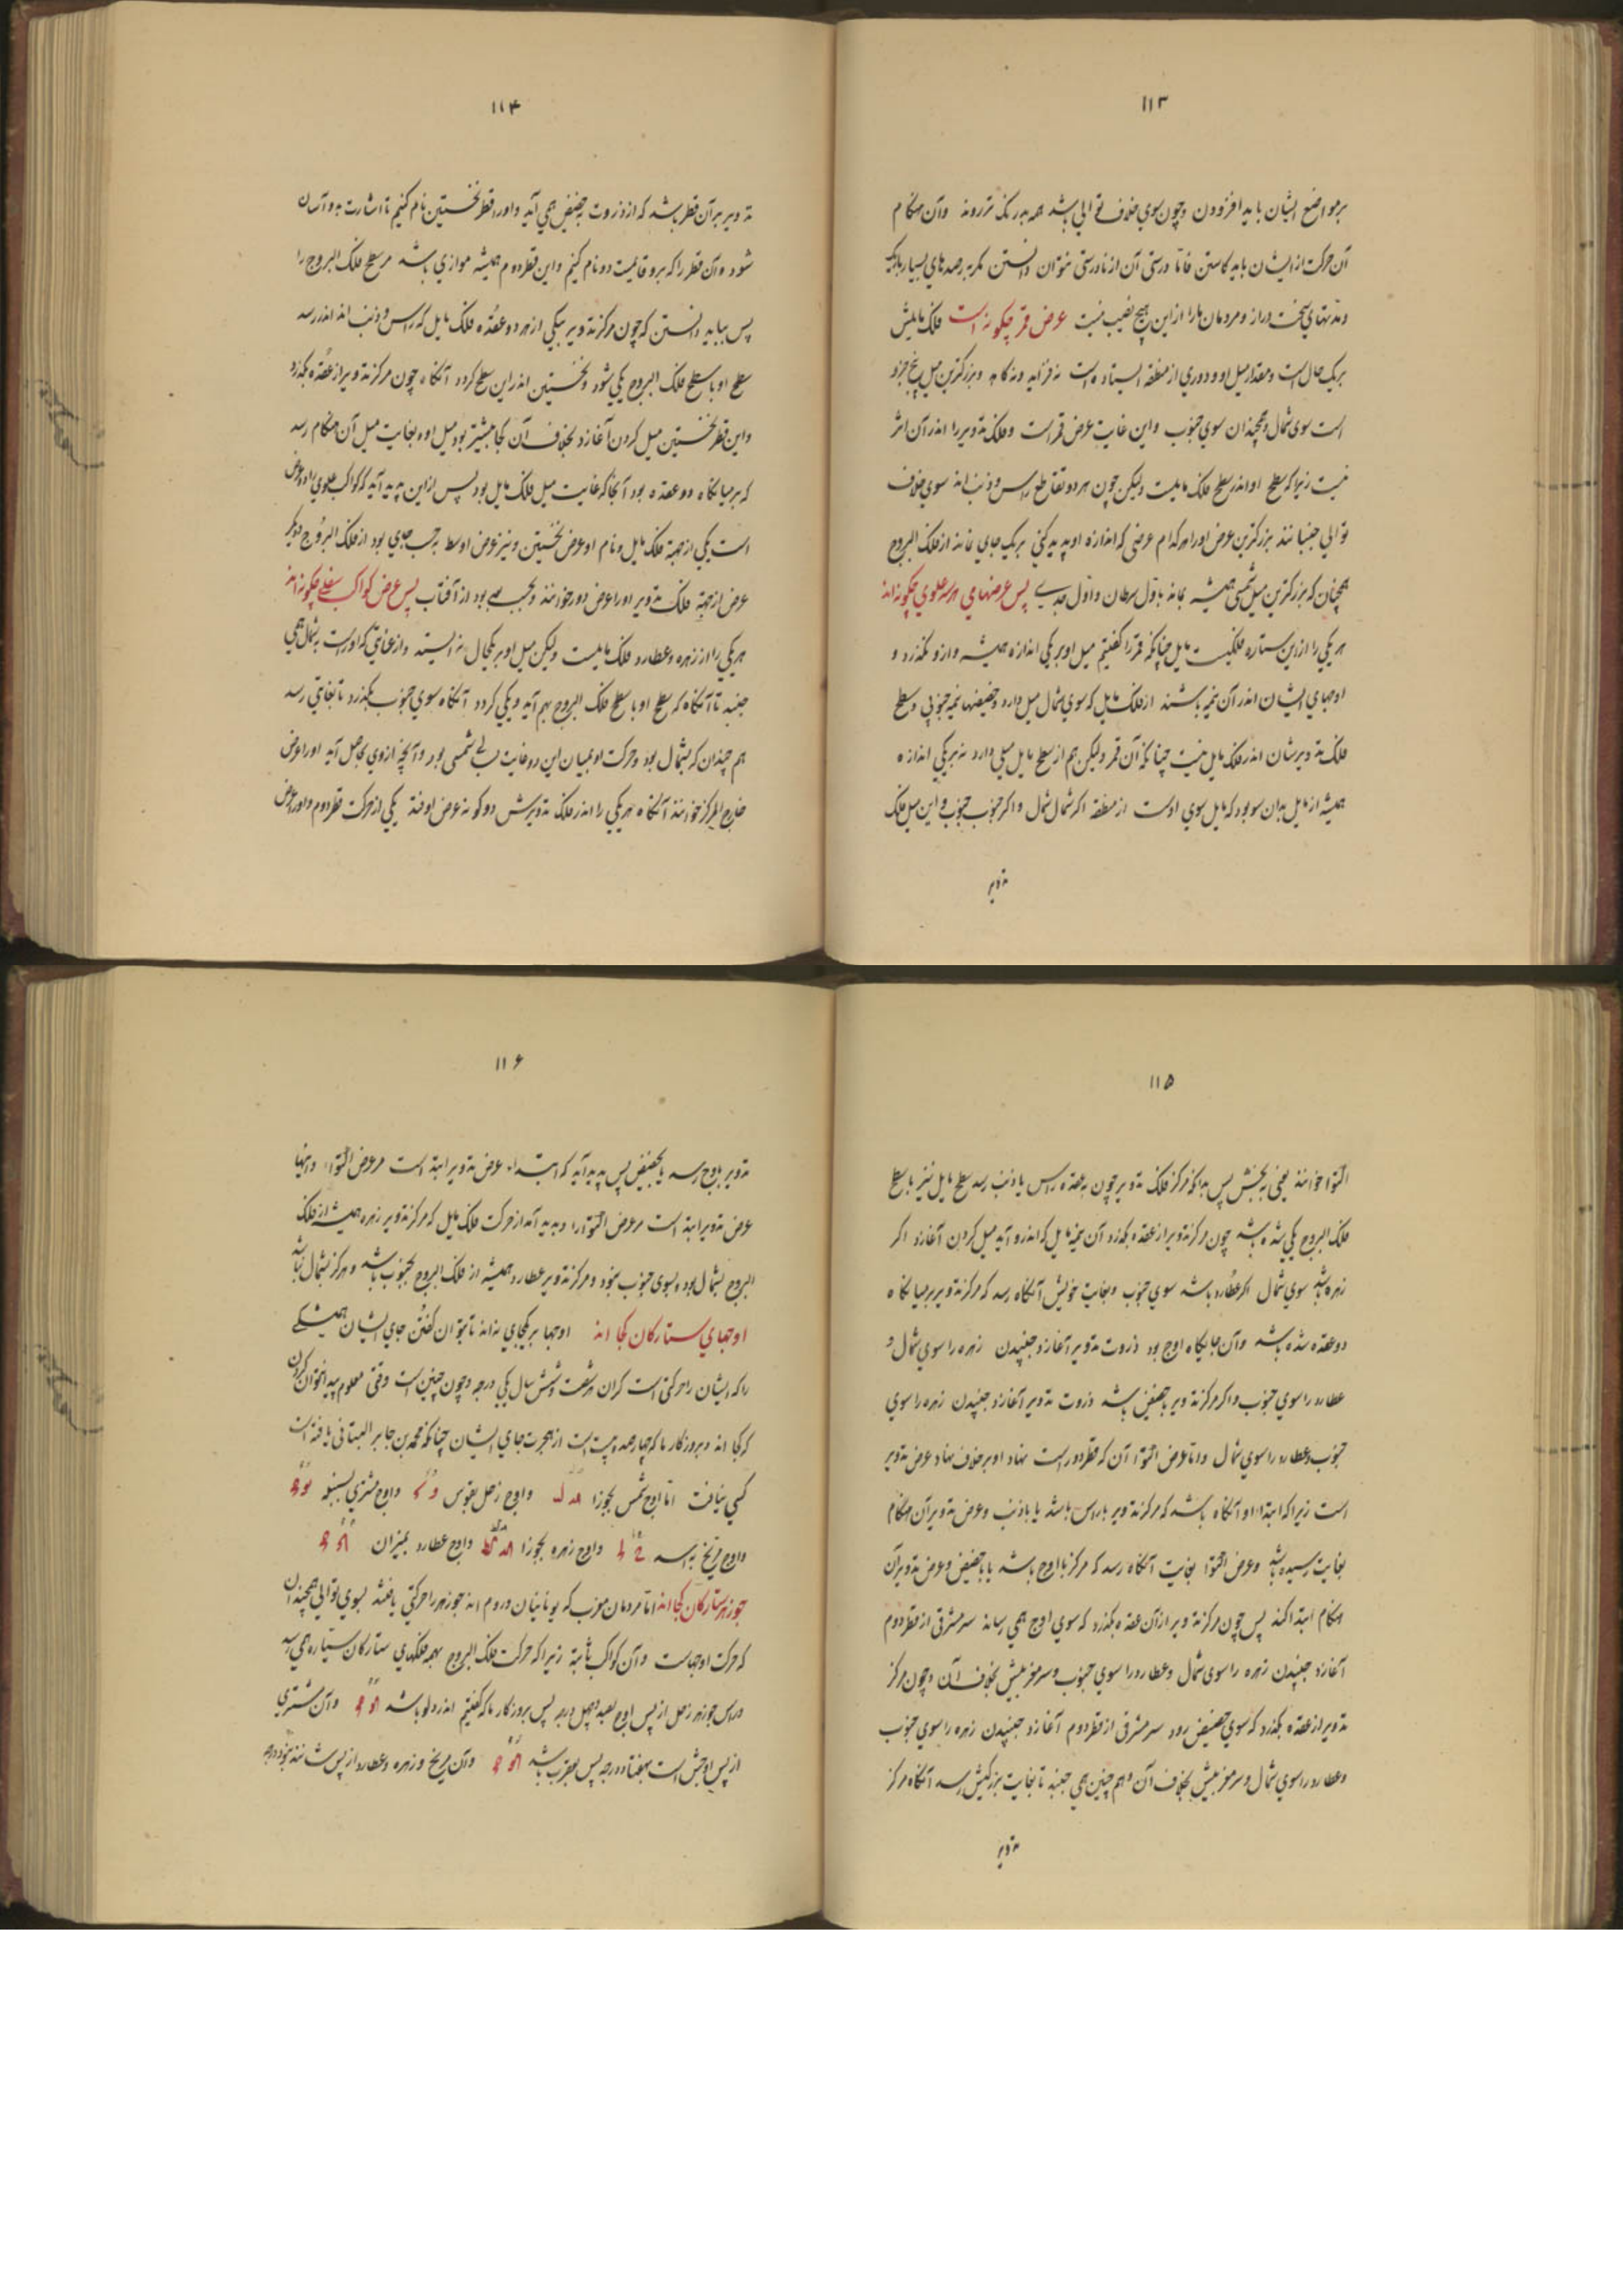 ۱۱۳
بر مواضع ایشان باید افزودن و چون سوی خلاف توالی باشد همه بدرنگ‌تر روند و آن هنگام
آن حرکت از ایشان باید کاستن فاما درستی آن از نادرستی نتوان دانستن مگر برصدهای بسیار باریک
و مدتهای سخت دراز و مردمان ما را از این هیچ نصیب نیست عرض قمر چگونه است فلک مایلش
بر یک حال است و مقدار میل او و دوری از منطقه ایستاده است نه فزاید و نه کاهد و بزرگترین میل پنج جزو
است سوی شمال و همچندان سوی جنوب و این غایت عرض قمر است و فلک تدویر را اندر آن اثر
نیست زیرا که سطح او اندر سطح فلک مایلست ولیکن چون هر دو تقاطع راس و ذنب اند سوی خلاف
توالی جنبانند بزرگترین عرض او را هر کدام عرضی که اندازه او پدید کنی بر یک جای نماند از فلک البروج
همچنان که بزرگترین میل شمسی همیشه بماند باول سرطان و اول جدی پس عرضهای هر سه علوی چگونه اند
هر یکی را از این ستاره فلکیست مایل چنانکه قمر را گفتیم میل او بر یکی اندازه همیشه و ازو نگذرد و
اوجهای ایشان اندر آن نیمه باشند از فلک مایل که سوی شمال میل دارد و حضیضها نیمه جنوبی و سطح
فلک تدویرشان اندر فلک مایل نیست چنانکه آن قمر ولیکن هم از سطح مایل میلی دارد نه بر یکی اندازه
همیشه از مایل بدان سو بود که مایل سوی اوست از منطقه اگر شمال شمال و اگر جنوب جنوب و این میل فلک
تدویر
۱۱۴
تدویر بر آن قطر باشد که از ذروت بحضیض همی آید و او را قطر نخستین نام کنیم تا اشارت بدو آسان
شود و آن قطر را که برو قائمست دو نام کنیم و این قطر دوم همیشه موازی باشد مر سطح فلک البروج را
پس بباید دانستن که چون مرکز تدویر بیکی از هر دو عقده فلک مایل که راس و ذنب اند اندر رسد
سطح او با سطح فلک البروج یکی شود و نخستین اندر این سطح گردد آنگاه چون مرکز تدویر از عقده بگذرد
و این قطر نخستین میل کردن آغازد بخلاف آن کجا بیشتر بود میل او و بغایت میل آن هنگام رسد
که بر میانگاه دو عقده بود آنجا که غایت میل فلک مایل بود پس از این پدید آید که کواکب علوی را دو عرض
است یکی از جهة فلک مایل و نام او عرض نخستین و نیز عرض اوسط بر حسب جای بود از فلک البروج دیگر
عرض از جهة فلک تدویر او را عرض دور خوانند و بحسب بعد بود از آفتاب پس عرض کواکب سفلی چگونه اند
هر یکی را از زهره و عطارد فلک مایلست ولیکن میل او بر یکحال نه ایستد و از غایتی که اوراست بشمال همی
جنبد تا آنگاه که سطح او با سطح فلک البروج بهم آید و یکی گردد آنگاه سوی جنوب بگذرد تا بغایتی رسد
هم چندان که بشمال بود و حرکت او بمیان این دو غایت شمسی بود و آنچه از وی حاصل آید او را عرض
خارج المرکز خوانند آنگاه هر یکی را اندر فلک تدویرش دو گونه عرض اوفتد یکی از حرکت قطر دوم و او را عرض
۱۱۵
التوا خوانند یعنی پیچش پس بدانکه مرکز فلک تدویر چون بعقده راس یا ذنب رسد سطح مایل نیز با سطح
فلک البروج یکی شده باشد چون مرکز تدویر از عقده بگذرد آن نیمه مایل که اندرو آید میل کردن آغازد اگر
زهره باشد سوی شمال اگر عطارد باشد سوی جنوب و بغایت خویش آنگاه رسد که مرکز تدویر بر میانگاه
دو عقده شده باشد و آن جایگاه اوج بود ذروت تدویر آغازد جنبیدن زهره را سوی شمال و
عطارد را سوی جنوب و اگر مرکز تدویر بحضیض باشد ذروت تدویر آغازد جنبیدن زهره را سوی
جنوب و عطارد را سوی شمال و اما عرض التوا آن که قطر دوراست نهاد او بر خلاف نهاد عرض تدویر
است زیرا که ابتداء او آنگاه باشد که مرکز تدویر با راس باشد یا با ذنب و عرض تدویر آن هنگام
بغایت رسیده باشد و عرض التوا بغایت آنگاه رسد که مرکز با اوج باشد یا با حضیض و عرض تدویر آن
هنگام ابتدا کند پس چون مرکز تدویر از آن عقده بگذرد که سوی اوج همی رساند سر مشرقی از قطر دوم
آغازد جنبیدن زهره را سوی شمال و عطارد را سوی جنوب و سر مغربیش بخلاف آن و چون مرکز
تدویر از عقده بگذرد که سوی حضیض رود سر مشرقی از قطر دوم آغازد جنبیدن زهره را سوی جنوب
و عطارد را سوی شمال و سر مغربیش بخلاف آن و هم چنین همی جنبد تا بغایت بزرگیش رسد آنگاه مرکز
تدویر
۱۱۶
تدویر باوج رسد یا بحضیض پس پدید آید که ابتداء عرض تدویر ابتدا است مر عرض التوا را و انتها
عرض تدویر ابتدا است مر عرض التوا را و پدید آمد از حرکت فلک مایل که مرکز تدویر زهره همیشه از فلک
البروج بشمال بود و بسوی جنوب نبود و مرکز تدویر عطارد همیشه از فلک البروج بجنوب باشد و هرگز بشمال نباشد
اوجهای ستارگان کجا اند اوجها بر یکجای نه اند تا بتوان گفتن جای ایشان همیشگی
را که ایشان را حرکتی است گران هر شصت و شش سال یکی درجه و چون چنین است وقتی معلوم پیدا نتوان کردن
که کجا اند و بروزگار ما که چهارصد و بیست است از هجرت جای ایشان چنانکه محمد بن جابر البتانی یافته است
کسی نیافت اما اوج شمس بجوزا و اوج زحل بقوس و اوج مشتری بسنبله
و اوج مریخ باسد و اوج زهره بجوزا و اوج عطارد بمیزان
جوزهر ستارگان کجا اند اما مردمان مغرب که یونانیان و روم اند جوزهر را حرکتی یافتند بسوی توالی همچندان
که حرکت اوجهاست و آن کواکب ثابته زیرا که حرکت فلک البروج بهمه فلکهای ستارگان سیاره همی رسد
و راس جوزهر زحل از پس اوج بصد و چهل درجه پس بروزگار ما که گفتیم اندر دلو باشد و آن مشتری
از پس اوجش است بهفتاد درجه پس بعقرب باشد و آن مریخ و زهره و عطارد از پس